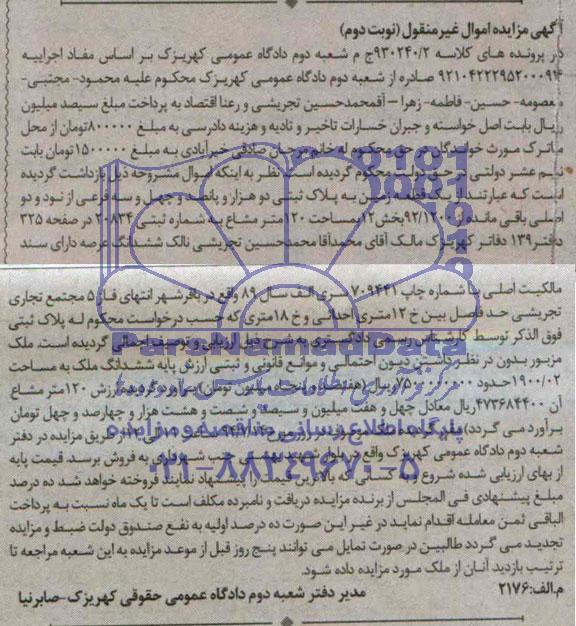 آگهی مزایده اموال غیرمنقول (نوبت دوم)
در پرونده های کلاسه ۹۳۰۲۴۰/۲ج م شعبه دوم دادگاه عمومی کهریزک بر اساس مفاد اجراییه
۹۲۱۰۴۲۲۲۹۵۲۰۰۰۹۴ صادره از شعبه دوم دادگاه عمومی کهریزک محکوم علیه محمود- مجتبی-
معصومه- حسین- فاطمه- زهرا – آقمحمدحسین تجریشی و رعنا اقتصاد به پرداخت مبلغ سیصد میلیون
ریال بابت اصل خواسته و جبران خسارات تاخیر و تادیه و هزینه دادرسی به مبلغ ۸۰۰۰۰۰تومان از محل
ماترک مورث خواندگان در حق محکوم له خانم مرجان صادقی خیرآبادی به مبلغ ۱۵۰۰۰۰۰تومان بابت
نیم عشر دولتی در حق دولت محکوم گردیده است نظر به اینکه اموال مشروحه ذیل بازداشت گردیده
است که عبارتند از یک قطعه زمین به پلاک ثبتی دو هزار و پانصد و چهل و سه فرعی از نود و دو
اصلی باقی مانده از ۹۲/۱۲۰۹بخش۱۲بمساحت ۱۲۰متر مشاع به شماره ثبتی ۲۰۸۳۴ در صفحه ۳۲۵
دفتر ۱۳۹ دفاتر کهریزک مالک آقای محمدآقا محمدحسین تجریشی مالک ششدانگ عرصه دارای سند
مالکیت اصلی با شماره چاپ ۷۰۹۴۴۱ سری الف سال ۸۹ واقع در باقرشهر انتهای فاز ۵ مجتمع تجاری
تجریشی حد فاصل بین خ ۱۲متری احداثی و خ ۱۸متری که حسب درخواست محکوم له پلاک ثبتی
فوق الذکر توسط کارشناس رسمی دادگستری به شرح ذیل ارزیابی و توصیف اجمالی گردیده است. ملک
مزبور بدون در نظر داشتن دیون احتمالی و موانع قانونی و ثبتی ارزش پایه ششدانگ ملک به مساحت
۱۹۰۰/۰۲حدود ریال (هفتصد و پنجاه میلیون تومان) برآورد گردید ارزش ۱۲۰متر مشاع
آن ۴۷۳۶۸۴۴۰۰ریال معادل چهل و هفت میلیون و سیصد و شصت و هشت هزار و چهارصد و چهل تومان
برآورد می گردد) مقرر گردید ملک مزبور در روز از طریق مزایده در دفتر
شعبه دوم دادگاه عمومی کهریزک واقع در بلوار شهید بهشتی جنب شهرداری به فروش برسد. قیمت پایه
از بهای ارزیابی شده شروع و به کسانی که بالاترین قیمت را پیشنهاد نمایند فروخته خواهد شد ده درصد
مبلغ پیشنهادی فی المجلس از برنده مزایده دریافت و نامبرده مکلف است تا یک ماه نسبت به پرداخت
الباقی ثمن معامله اقدام نماید در غیر این صورت ده درصد اولیه به نفع صندوق دولت ضبط و مزایده
تجدید می گردد طالبین در صورت تمایل می توانند پنج روز قبل از موعد مزایده به این شعبه مراجعه تا
ترتیب بازدید آنان از ملک مورد مزایده داده شود.
م.الف: ۲۱۷۶ مدیر دفتر شعبه دوم دادگاه عمومی حقوقی کهریزک-صابرنیا
ParsNamadData
پایگاه اطلاع رسانی مناقصه و مزایده
۰۲۱-۸۸۳۴۹۶۷۰-۵